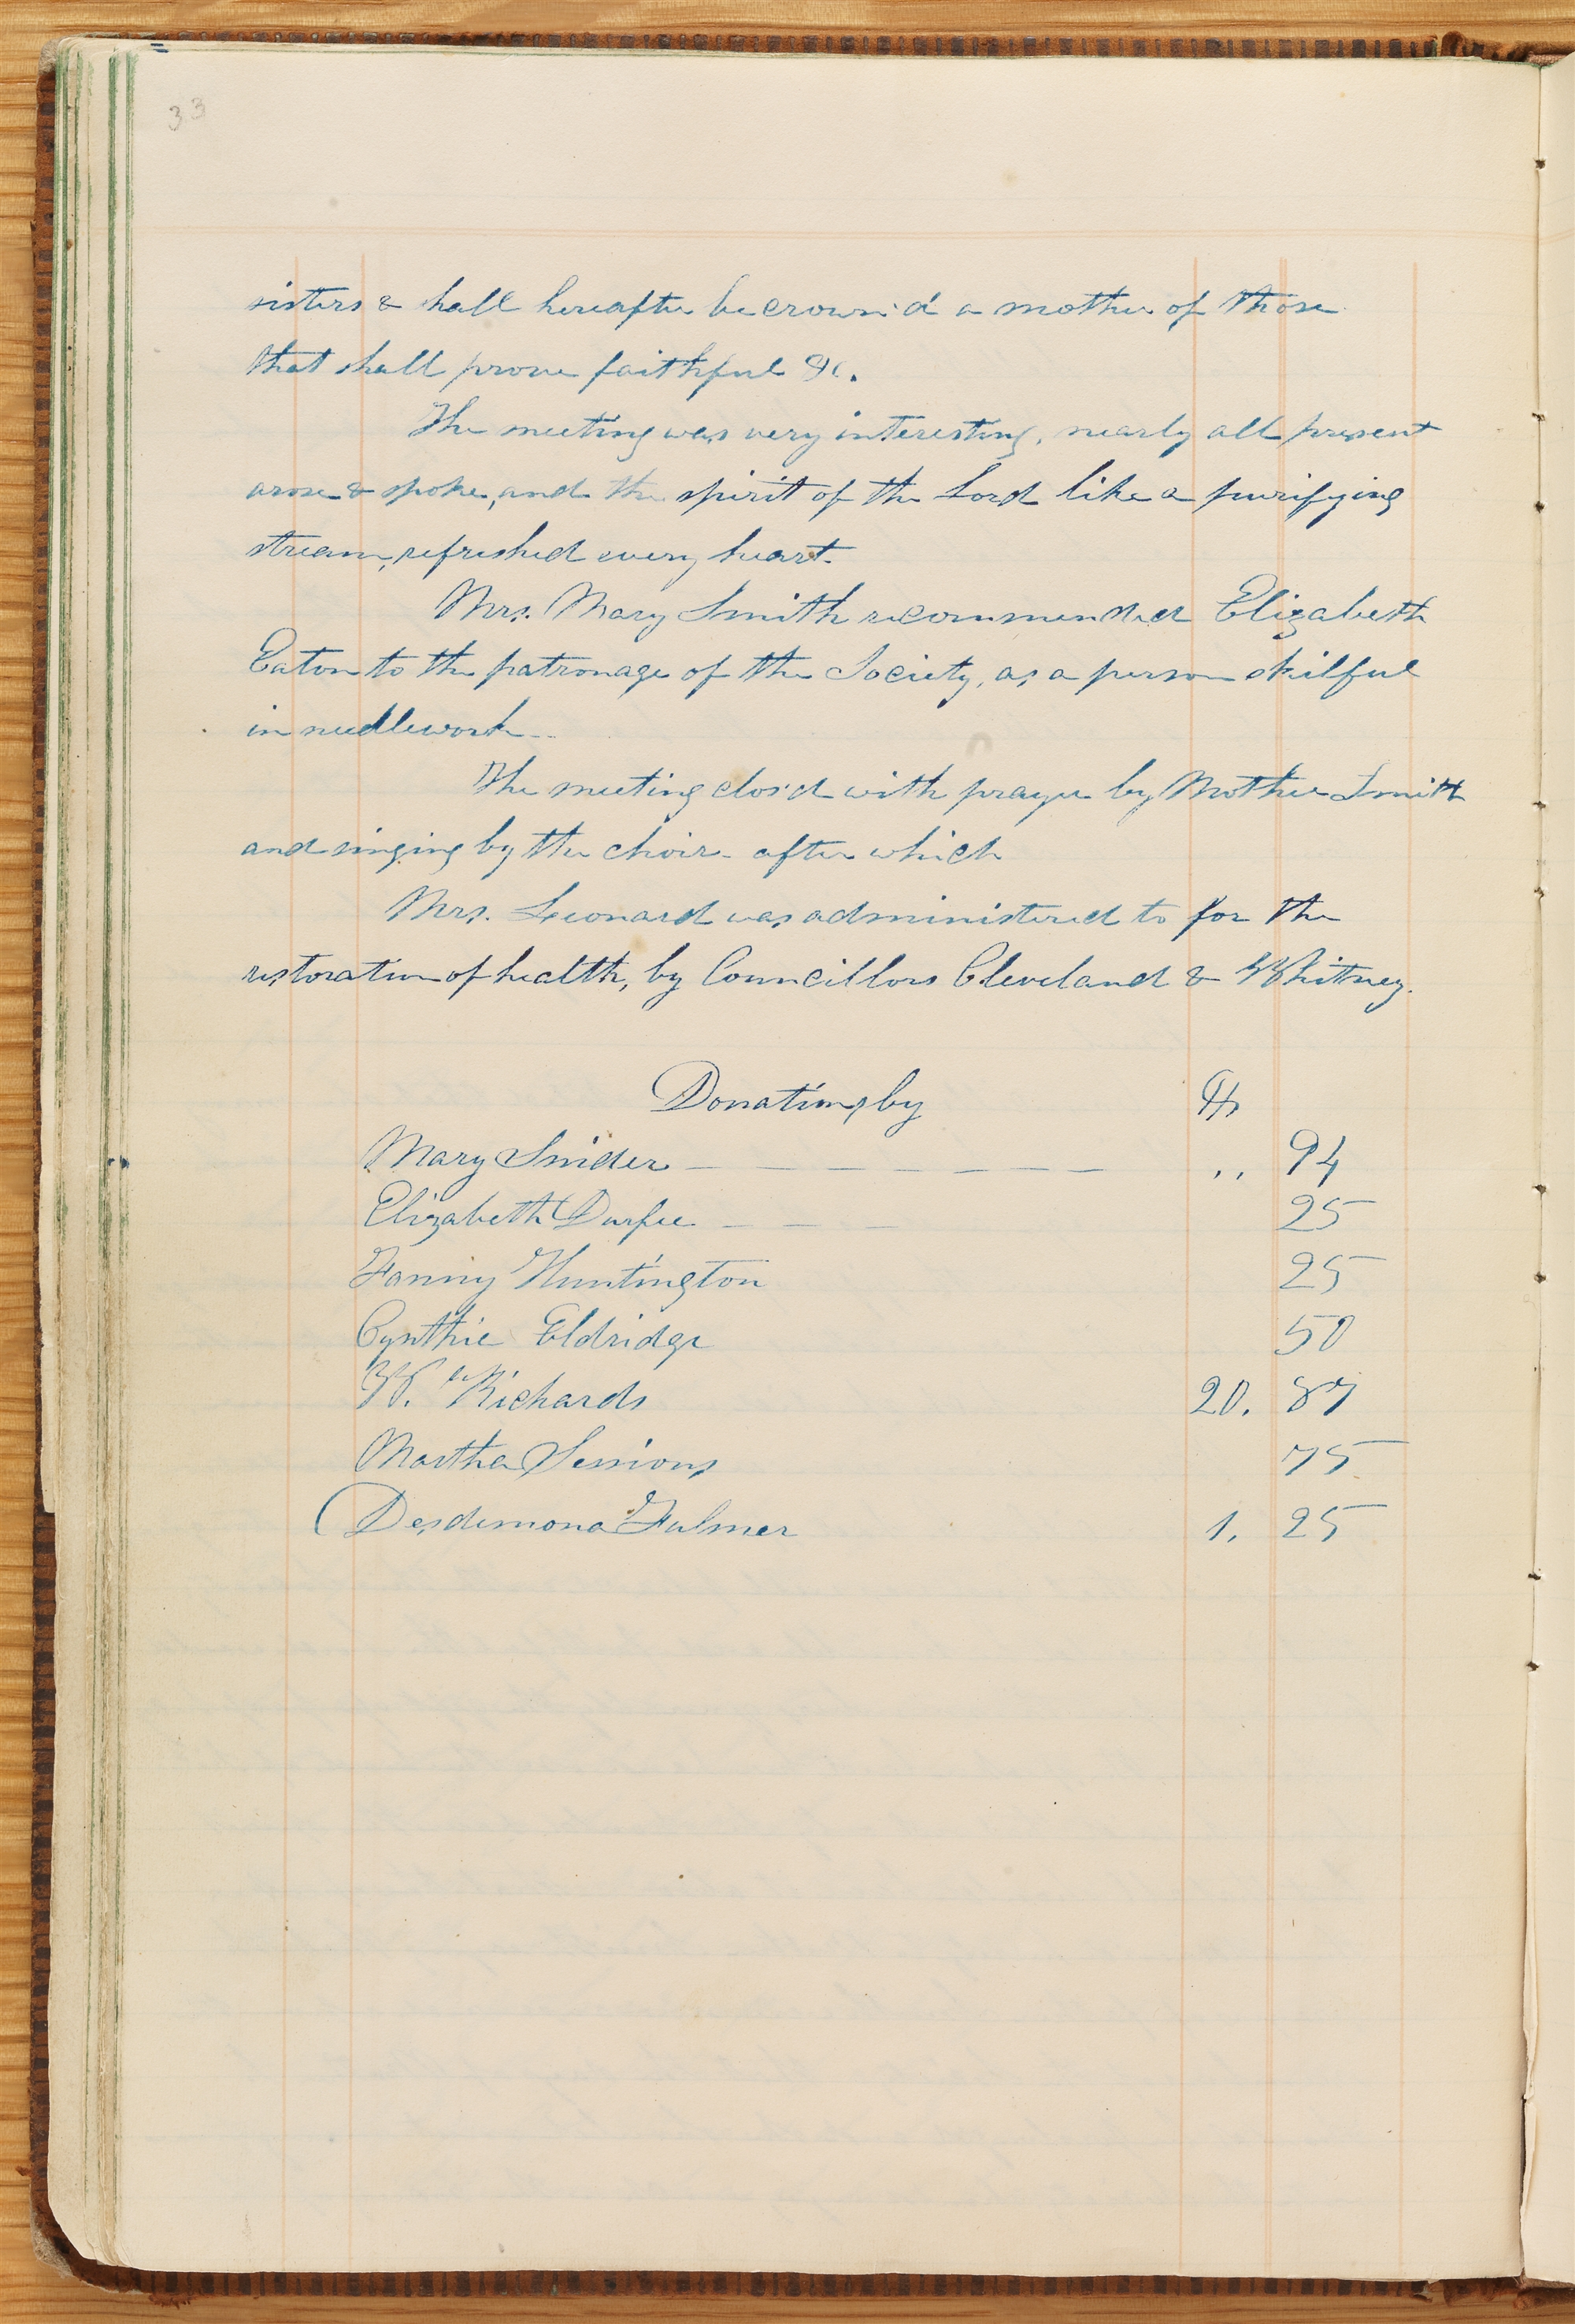 33
sisters & shall hereafter be crown'd a mother of those
that shall prove faithful &c.
The meeting was very interesting, nearly all present
arose & spoke, and the spirit of the Lord like a purifying
stream, refreshed every heart.
Mrs. Mary Smith recommended Elizabeth
Eaton to the patronage of the Society, as a person skilful
in needlework—
The meeting clos'd with prayer by Mother Smith
and singing by the choir - after which
Mrs. Leonard was administered to for the
restoration of health, by Councillors Cleveland & Whitney.
Donations by
Mary Snider — — — — — — — ,, 94
Elizabeth Durfee — — — 25
Fanny Huntington 25
Cynthie Eldridge 50
W. Richards 20. 87
Martha Sessions 75
Desdemona Fulmer 1. 25